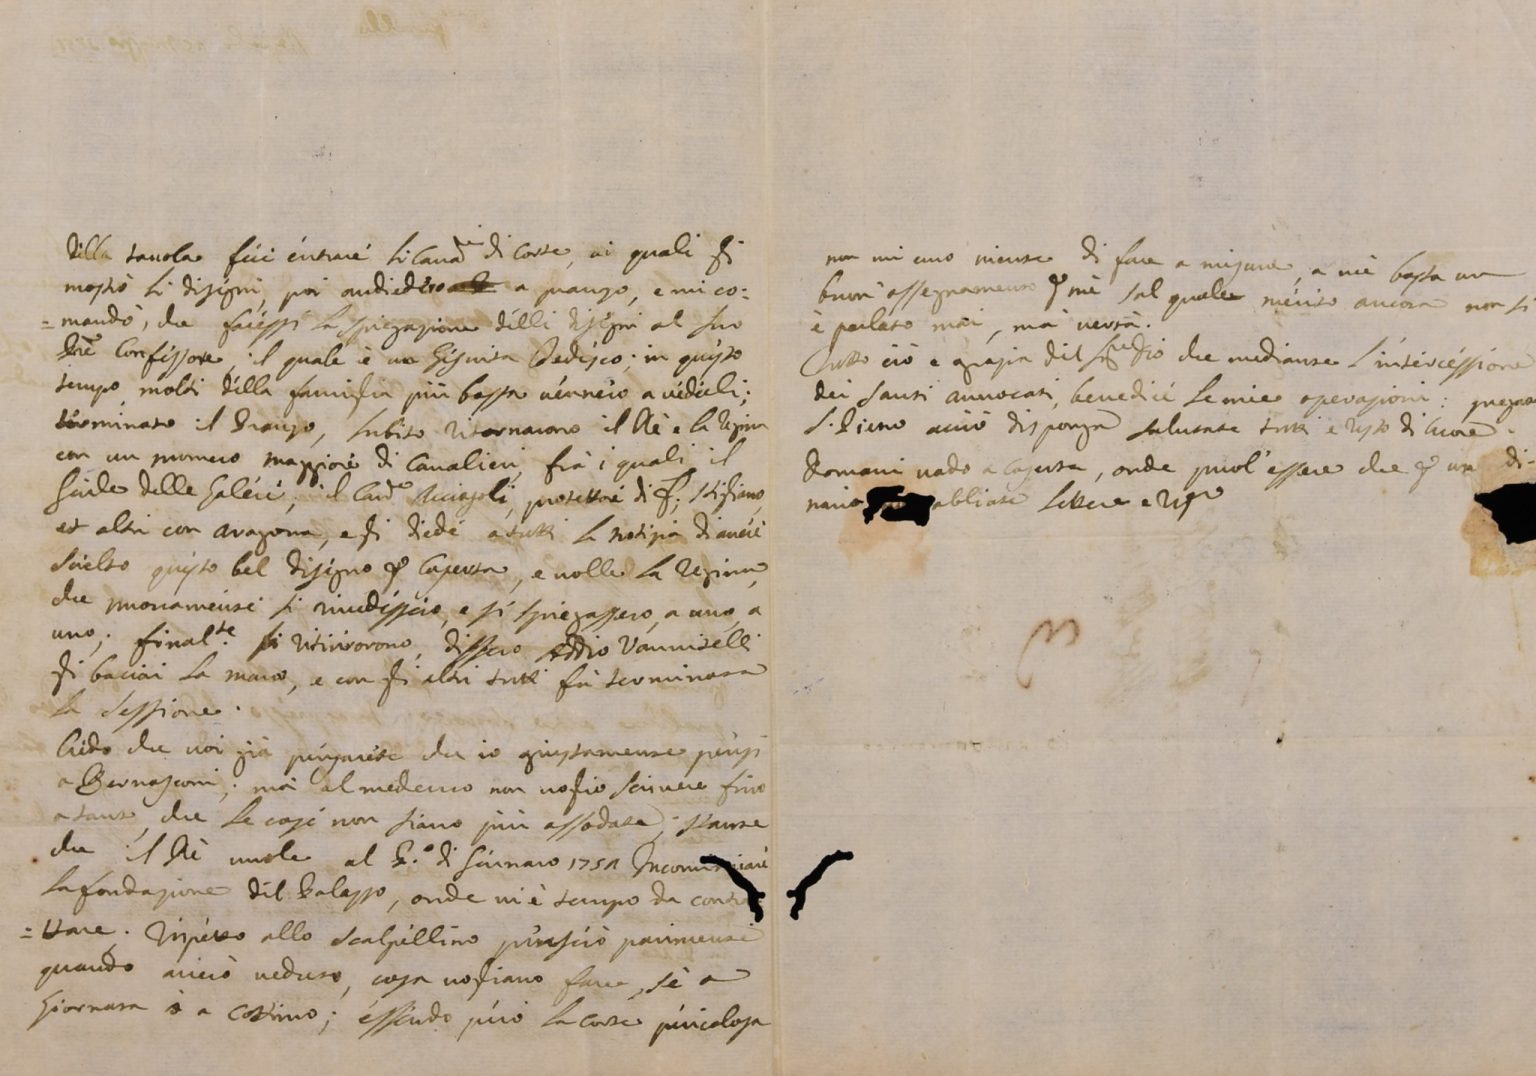 della tavola feci entrare li Cavri di Corte, ai quali gli
mostrò li disegni, poi andiedero a pranzo, e mi co:
=mandò, che facessi la spiegazione delli disegni al suo
Pre Confessore, il quale è un Gesuita Tedesco; in questo
tempo molti della famiglia più bassa vennero a vederli;
terminato il Pranzo, subito ritornarono il Rè e la Regina
con un numero maggiore di Cavalieri, frà i quali il
Gnãle delle Galere, il Cavre Acciajoli, protettore di
et altri con aragona, e gli diede a tutti la notizia di avere
scielto questo bel disegno per Caserta, e volle la Regina,
che nuovamente li rivedessero, e si spiegassero, a uno, a
uno; finalte si ritirorono, dissero Addio Vanvitelli
gli baciai la mano, e con gli altri tutti fù terminata
la sessione.
Credo che voi già pensarete che io giustamente pensi
a Bernasconi; mà al medemo non voglio scrivere fino
a tanto, che le cose non siano più assodate; stante
che il Rè vuole al P.º di Gennaro 1752 Incominciare
la fondazione del Palazzo, onde vi è tempo da contra
=ttare. Rispetto allo scalpellino penserò parimenti
quando averò veduto, cosa vogliano fare, sè a
Giornata ò a Cottimo; essendo però la Corte pericolosa
non mi curo niente di fare a misura, a mè basta un
buon' assegnamento per mè sul quale niente ancora non si
è parlato mai, mà verrà.
Tutto ciò e grazia del Sig.re Dio che mediante l'intercessione
dei Santi avvocati, benedice le mie operazioni: pregate
S. Pietro acciò disponga salutate tutti e resto di cuore.
Domani vado a Caserta, onde puol' essere che per un di-
nario abbiate lettere e